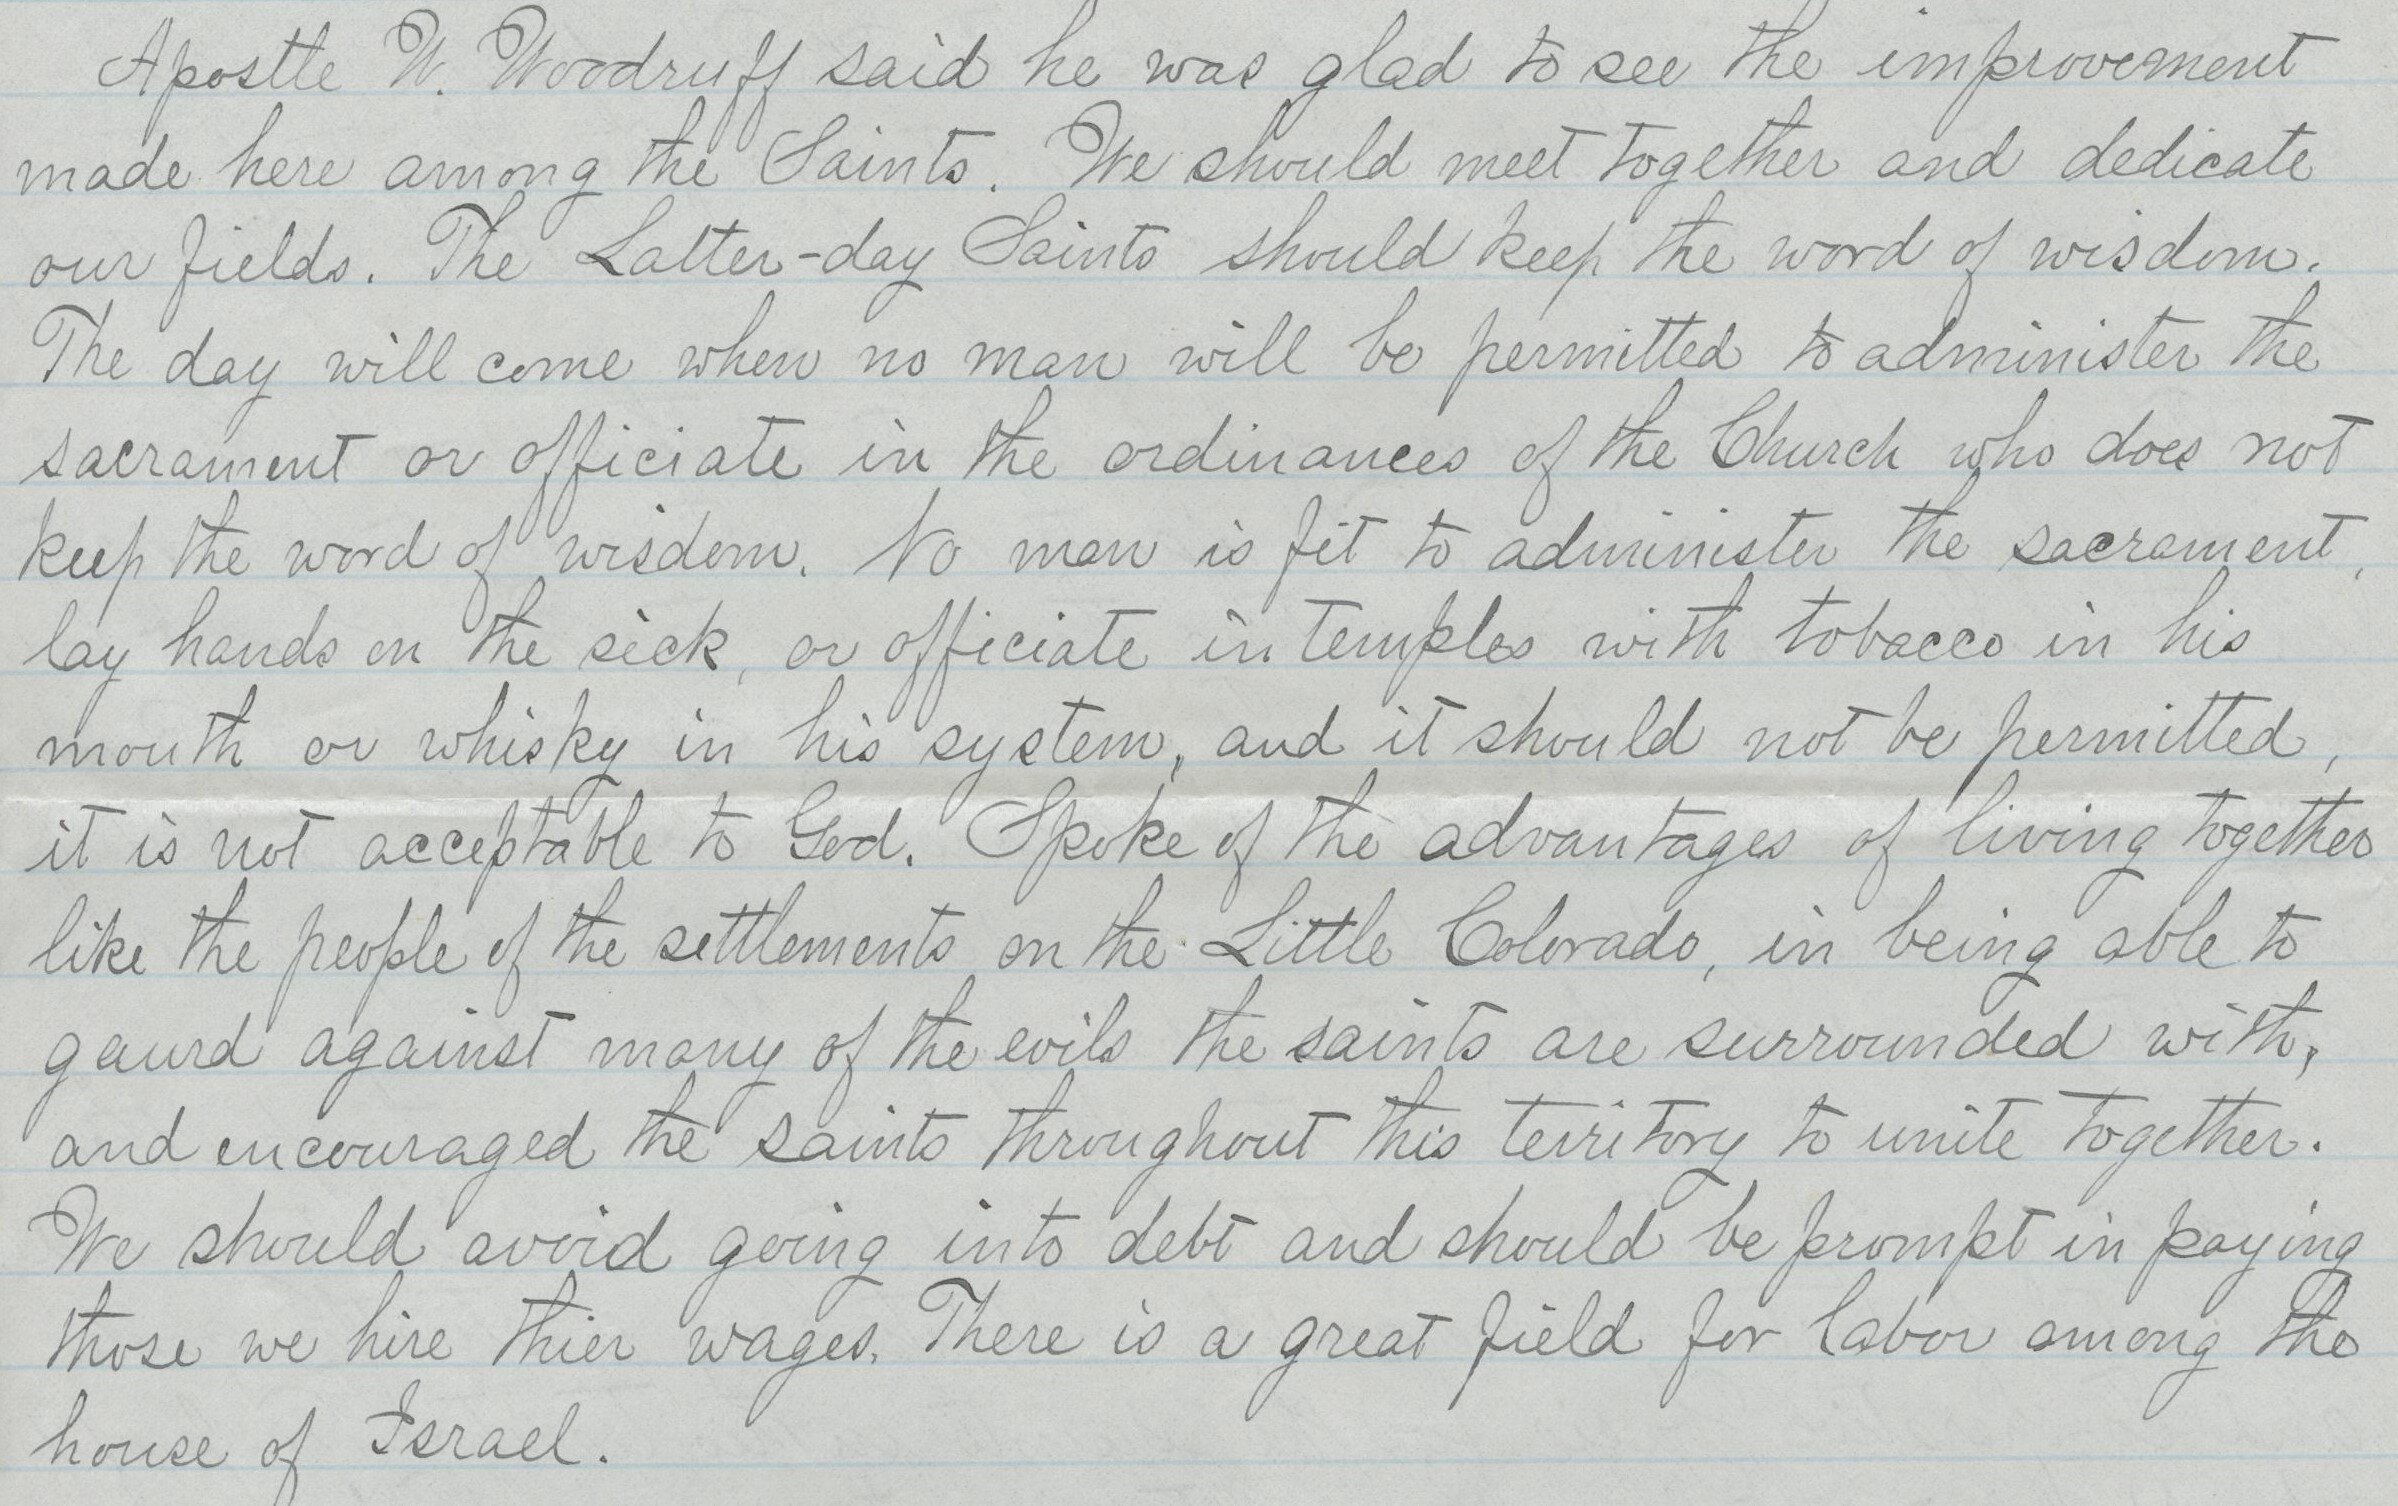 Apostle W. Woodruff said he was glad to see the improvement
made here among the Saints. We should meet together and dedicate
our fields. The Latter-day Saints should keep the word of wisdom.
The day will come when no man will be permitted to administer the
sacrament or officiate in the ordinances of the Church who does not
keep the word of wisdom. No man is fit to administer the sacrament,
lay hands on the sick, or officiate in temples with tobacco in his
mouth or whisky in his system, and it should not be permitted,
it is not acceptable to God. Spoke of the advantages of living together
like the people of the settlements on the Little Colorado, in being able to
gaurd against many of the evils the saints are surrounded with,
and encouraged the saints throughout this territory to unite together.
We should avoid going into debt and should be prompt in paying
those we hire thier wages. There is a great field for labor among the
house of Israel.